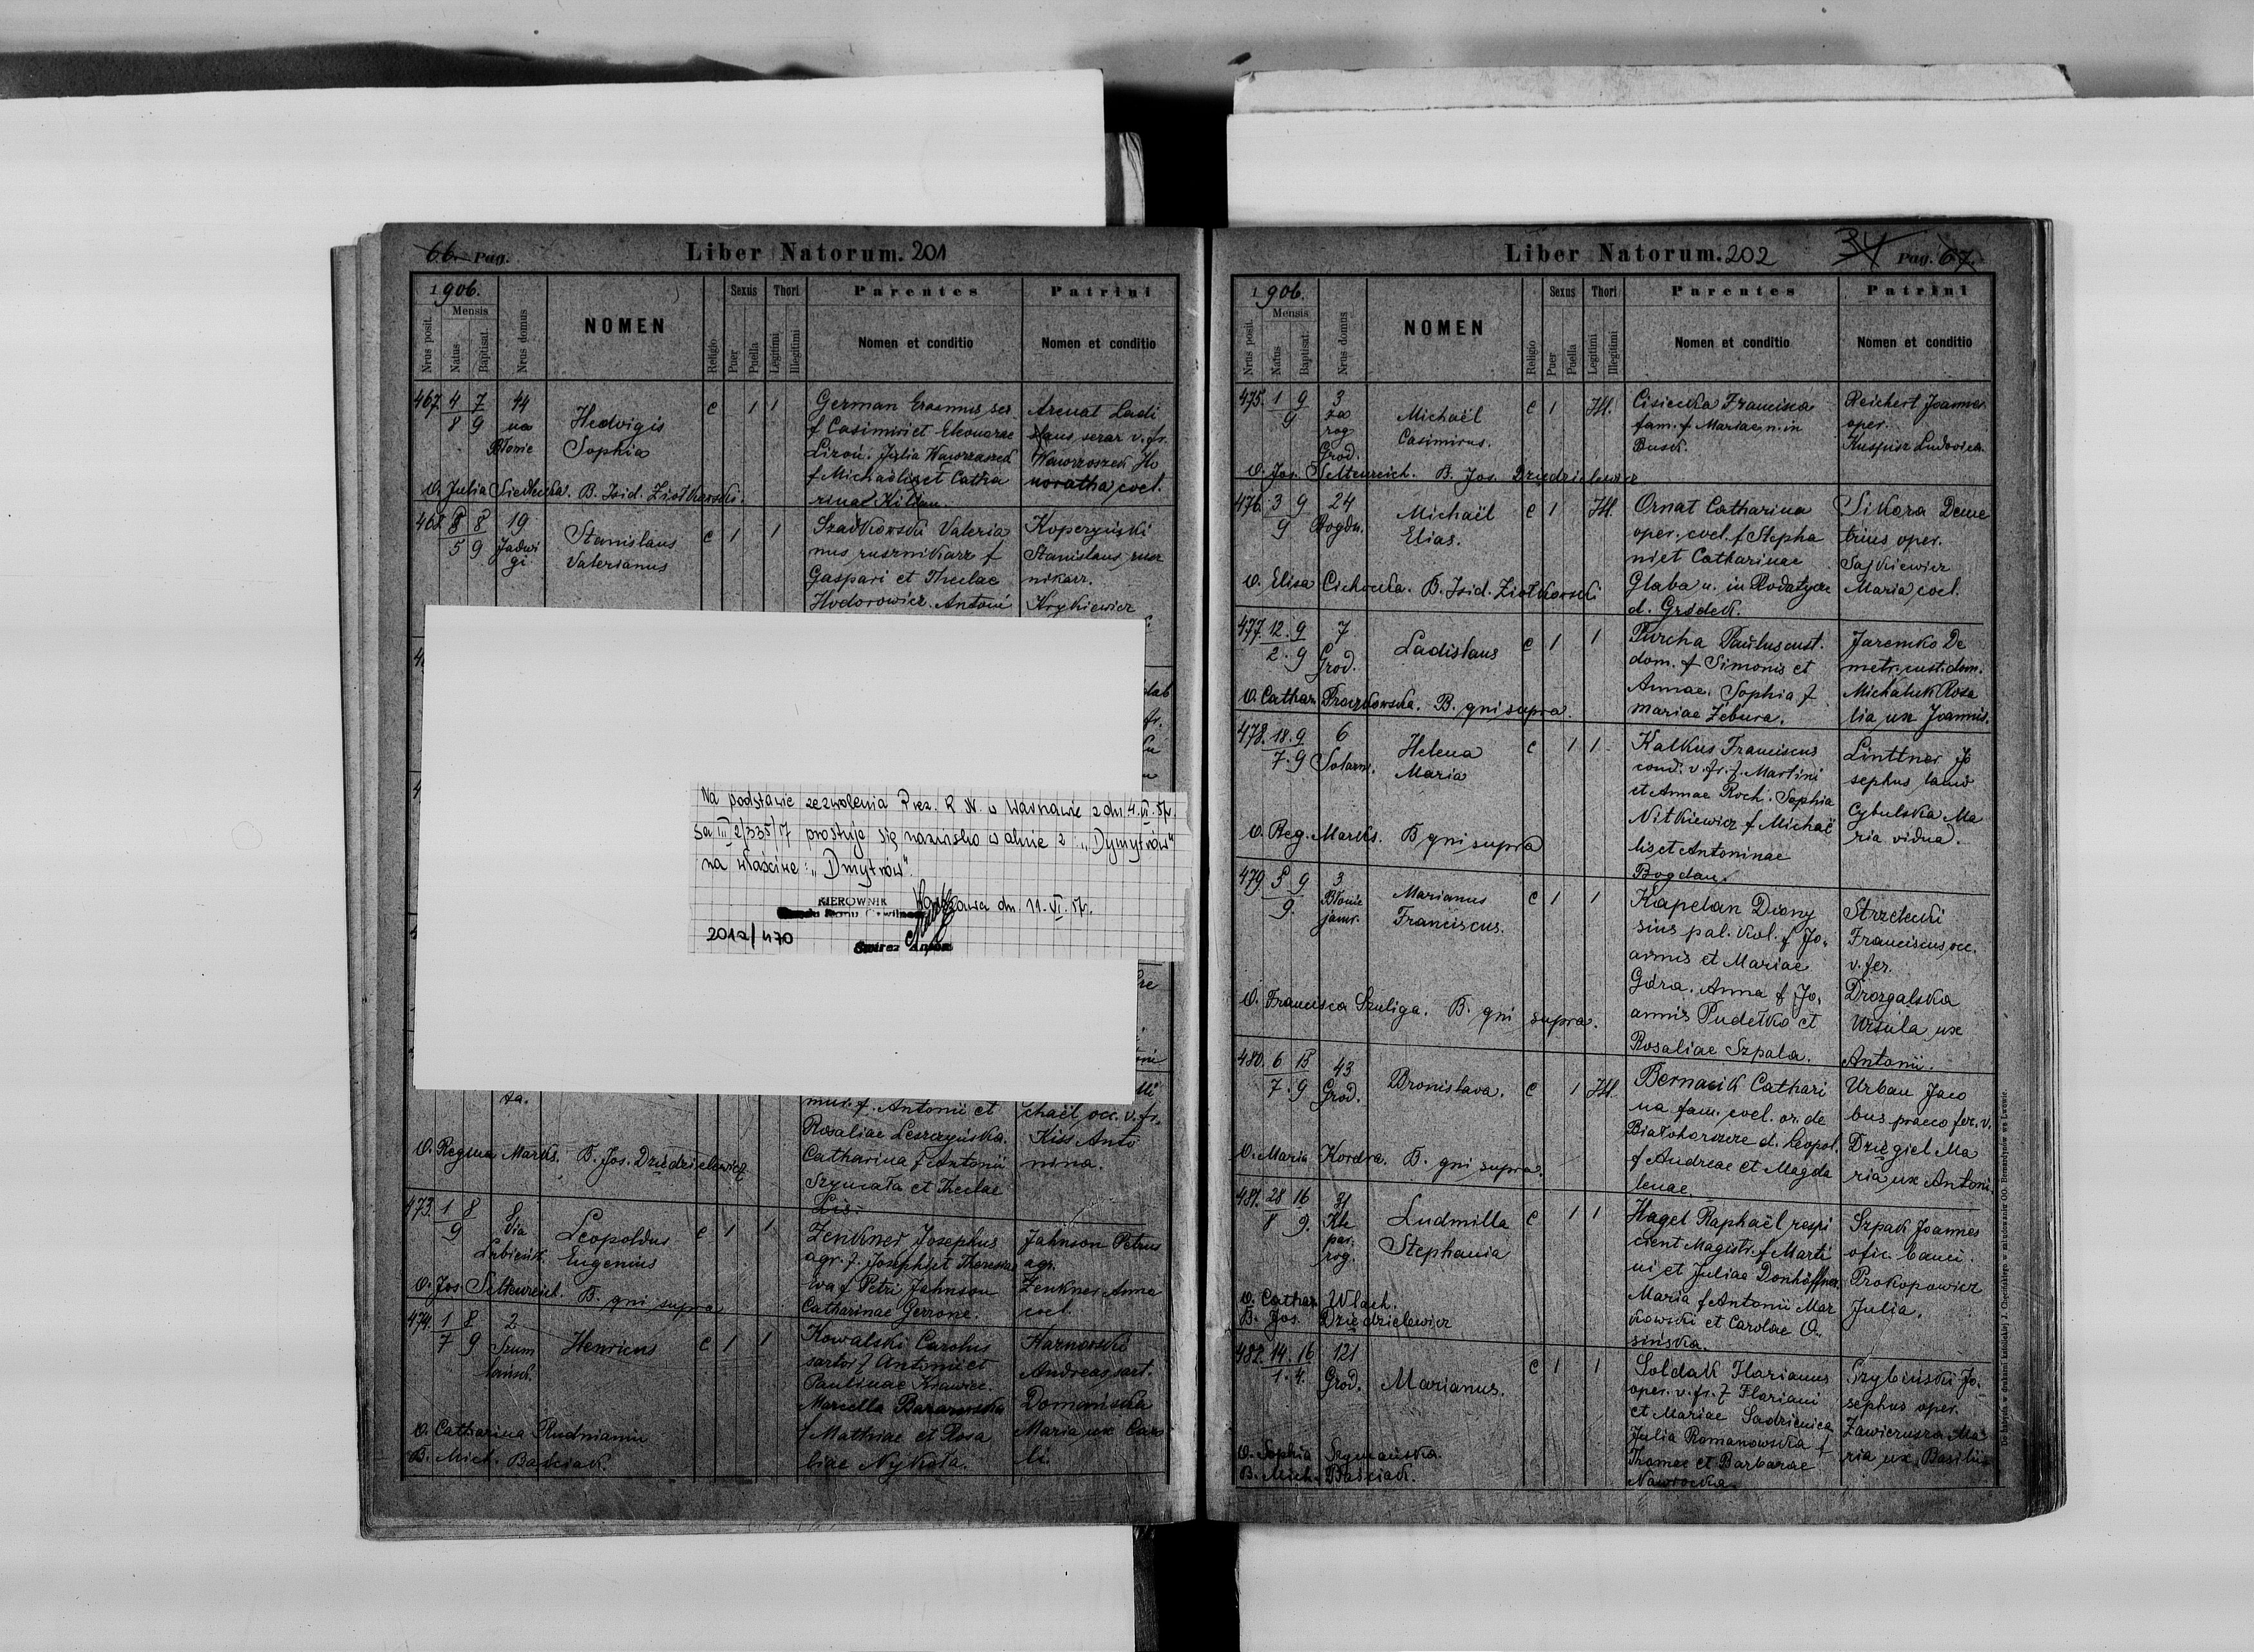 66. Pag.
Liber Natorum. 201
1906.
Mensis
Nrus posit.
Natus
Baptisat.
Nrus domus
NOMEN
Religio
Sexus
Puer
Puella
Thori
Legitimi
Illegitimi
Parentes
Nomen et conditio
Patrini
Nomen et conditio
467 4 7 44
8 9 na
Błonie
Hedvigis
Sophia
c 1 1
German Erasmus ser.
f Casimiri et Eleonorae
Julia Wawrzaszek
f Michaëlis et Catha
rinae Kilian.
Arenat Ladi
slaus serar v. fr.
Wawrzoszek Ho
noratha coel.
O. Julia Siedlecka. B. Isid. Ziołkowski.
468. 8 8 19
5 9 Jadwi
gi
Stanislaus
Valerianus
c 1 1
Szadkowski Valeria
nus, rusznikarz f
Gaspari et Theclae
Hodorowicz. Antoni
Koperzyński
Stanislaus, rusz
nikarz.
Krykiewicz
Na podstawie zezwolenia Prez. R. N. w Warszawie z dn. 4.VI.57r.
Sa III 2/335/57 prostuje się nazwisko w aknie 2: „Dymytrów"
na właściwe: „Dmytrów".
KIEROWNIK
Warszawa dn. 11.VI.57r.
201a/470
mur. f. Antonii et
Rosaliae Leszczyńska.
Catharina f Antonii
Szymała et Theclae
Lis.
chaël, occ. v. fr.
Kiss Anto
nina.
O. Regina Marks. B. Jos. Dziędzielewicz
473. 1 8 8
9 Via
Lubieńsk.
Leopoldus
Eugenius
c 1 1
Zenkner Josephus
agr. f. Josephi et Theresiae
Eva f Petri Jahnson
Catharinae Gerrone.
Jahnson Petrus
agr.
Zenkner Anna
coel.
O. Jos. Seltenreich. B. qui supra
474. 1 8 2
7 9 Szum
lańsk.
Henricus
c 1 1
Kowalski Carolus
sartor f Antonii et
Paulinae Krawiec.
Marcella Baranowska
f Mathiae et Rosa
liae Nykoła.
Harnowski
Andreas, sart.
Dominiska
Maria, ux Caro
li.
O. Catharina Rudnianin
B. Mich. Baściak.
Liber Natorum. 202
34 Pag. 67.
1906.
Mensis
Nrus posit.
Natus
Baptisat.
Nrus domus
NOMEN
Religio
Sexus
Puer
Puella
Thori
Legitimi
Illegitimi
Parentes
Nomen et conditio
Patrini
Nomen et conditio
475. 1 9 3
9 za
rog.
Grod.
Michaël
Casimirus.
c 1 Ill.
Cisiecka Francisca
fam. f Mariae, n. in
Busk.
Reichert Joannes
oper.
Kuspisz Ludovica
O. Jos. Seltenreich. B. Jos. Dziędzielewicz
476. 3 9 24
9 Bogdn.
Michaël
Elias.
c 1 Ill.
Ornat Catharina
oper. coel. f Stepha
ni et Catharinae
Glaba n. in Rodatycze
d. Gródek.
Sikora Deme
trius oper.
Sajkiewicz
Maria, coel.
O. Elisa Cichocka. B. Isid. Ziołkowski
477. 12. 9 7
2. 9 Grod.
Ladislaus c 1 1
Purcha Paulus cust.
dom. f Simonis et
Annae. Sophia f
Mariae Zebura.
Jaremko De
metr. cust. dom.
Michaluk Rosa
lia, ux Joannis.
O. Cathar. Frączkowska. B. qui supra.
478. 18. 9 6
7. 9 Solarn.
Helena
Maria
c 1 1
Kalkus Franciscus
cond. v. fr. f. Martini
et Annae Roch. Sophia
Nitkiewicz f Michaë
lis et Antoninae
Bogdan.
Linttner Jo
sephus, laniо
Cybulska Ma
ria vidua.
O. Reg. Marks. B qui supra
479 5 9 3
9. Błonie
janow.
Marianus
Franciscus.
c 1 1
Kapelan Diony
sius pal. kol. f Jo.
annis et Mariae
Góra. Anna f Jo.
annis Pudełko et
Rosaliae Szpala.
Strzelecki
Franciscus, occ.
v. fer.
Drozgalska
Ursula, ux
Antonii.
O. Francisca Szuliga. B. qui supra.
480. 6 15 43
7. 9 Grod.
Bronislava. c 1 Ill.
Bernacik Cathari
na fam. coel. or. de
Białohorszcze d. Leopol.
f Andreae et Magda
lenae.
Urban Jaco
bus praeco fer. v.
Dzięgiel Ma
ria, ux Antoni.
O. Maria Kordza. B. qui supra.
481. 28 16 3f
8 9. Kle
par.
rog.
Ludmilla
Stephania
c 1 1
Hagel Raphaël respi
cient Magistr. f Marti
ni et Juliae Donhöffner.
Maria f Antonii Mar
kowski et Carolae O
sińska.
Szpak Joannes
ofic. banci.
Prokopowicz
Julia.
O. Cathar. Wlach.
B. Jos. Dziędzielewicz
482. 14. 16 121
1. 4. Grod.
Marianus. c 1 1
Soldak Florianus
oper. v. fr. f Floriani
et Mariae Sadzienica
Julia Romanowska f
Thomae et Barbarae
Nawrocka.
Szybiński Jo.
sephus oper.
Zawierucza Ma
ria ux Basilii
O. Sophia Szymańska.
B. Mich. Baściak.